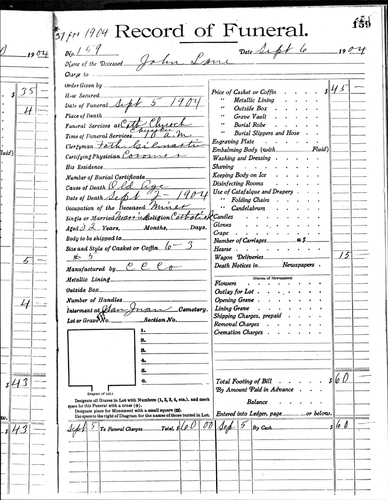 0 1904
35
4
luid)
5
4
$43
$43
31 for 1904
Record of Funeral.
159
No. 159
Date Sept 6 1904
Name of the Deceased John
Charge to
Order Given by
How Secured
Date of Funeral Sept 5 1904
Place of Death
Funeral Services at Cath Church
Time of Funeral Services 10 a.m.
Clergyman Fath
Certifying Physician Coroner
His Residence
Number of Burial Certificate
Cause of Death Old Age
Date of Death Sept 2 - 1904
Occupation of the Deceased Miner
Single or Married Religion Catholic
Aged 22 Years, Months, Days.
Body to be shipped to
Size and Style of Casket or Coffin 6-3
# 5
Manufactured by C C Co
Metallic Lining
Outside Box
Number of Handles
Interment at San Juan Cemetery.
Lot or Grave No. Section No.
1.
2.
3.
4.
5.
6.
(Diagram of Lot.)
Designate all Graves in Lot with Numbers (1, 2, 3, 4, etc.), and mark
space for this Funeral with a cross (+).
Designate place for Monument with a small square (□).
Use space to the right of Diagram for names of those buried in Lot.
Sept 5 To Funeral Charges Total, $60 00
Price of Casket or Coffin $45
" Metallic Lining
" Outside Box
" Grave Vault
" Burial Robe
" Burial Slippers and Hose
Engraving Plate
Embalming Body (with Fluid)
Washing and Dressing
Shaving
Keeping Body on Ice
Disinfecting Rooms
Use of Catafalque and Drapery
" Folding Chairs
" Candelabrum
Candles
Gloves
Crape
Number of Carriages @ $
Hearse
Wagon Deliveries 15
Death Notices in Newspapers
(Names of Newspapers)
Flowers
Outlay for Lot
Opening Grave
Lining Grave
Shipping Charges, prepaid
Removal Charges
Cremation Charges
Total Footing of Bill $60
By Amount Paid in Advance
Balance
Entered into Ledger, page or below.
Sept 5 By Cash $60